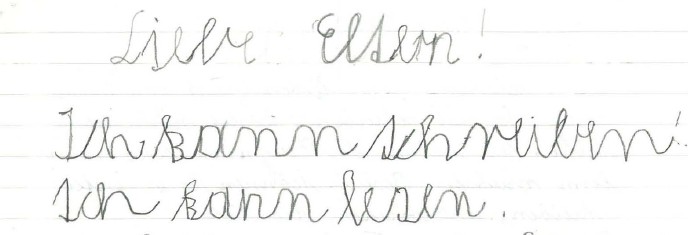 Liebe Eltern!
Ich kann schreiben!
Ich kann lesen.